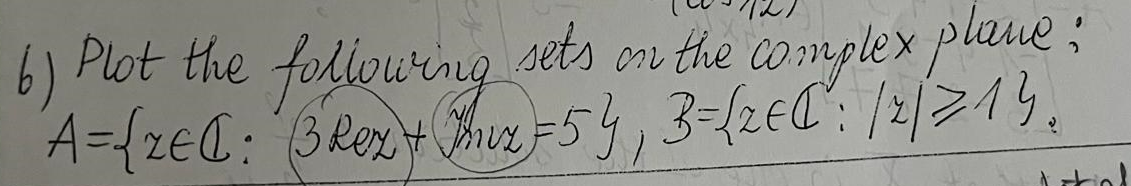 b) Plot the following sets on the complex plane:
A={z∈ℂ: 3Rez + Imz=5}, B={z∈ℂ: |z|⩾1}.